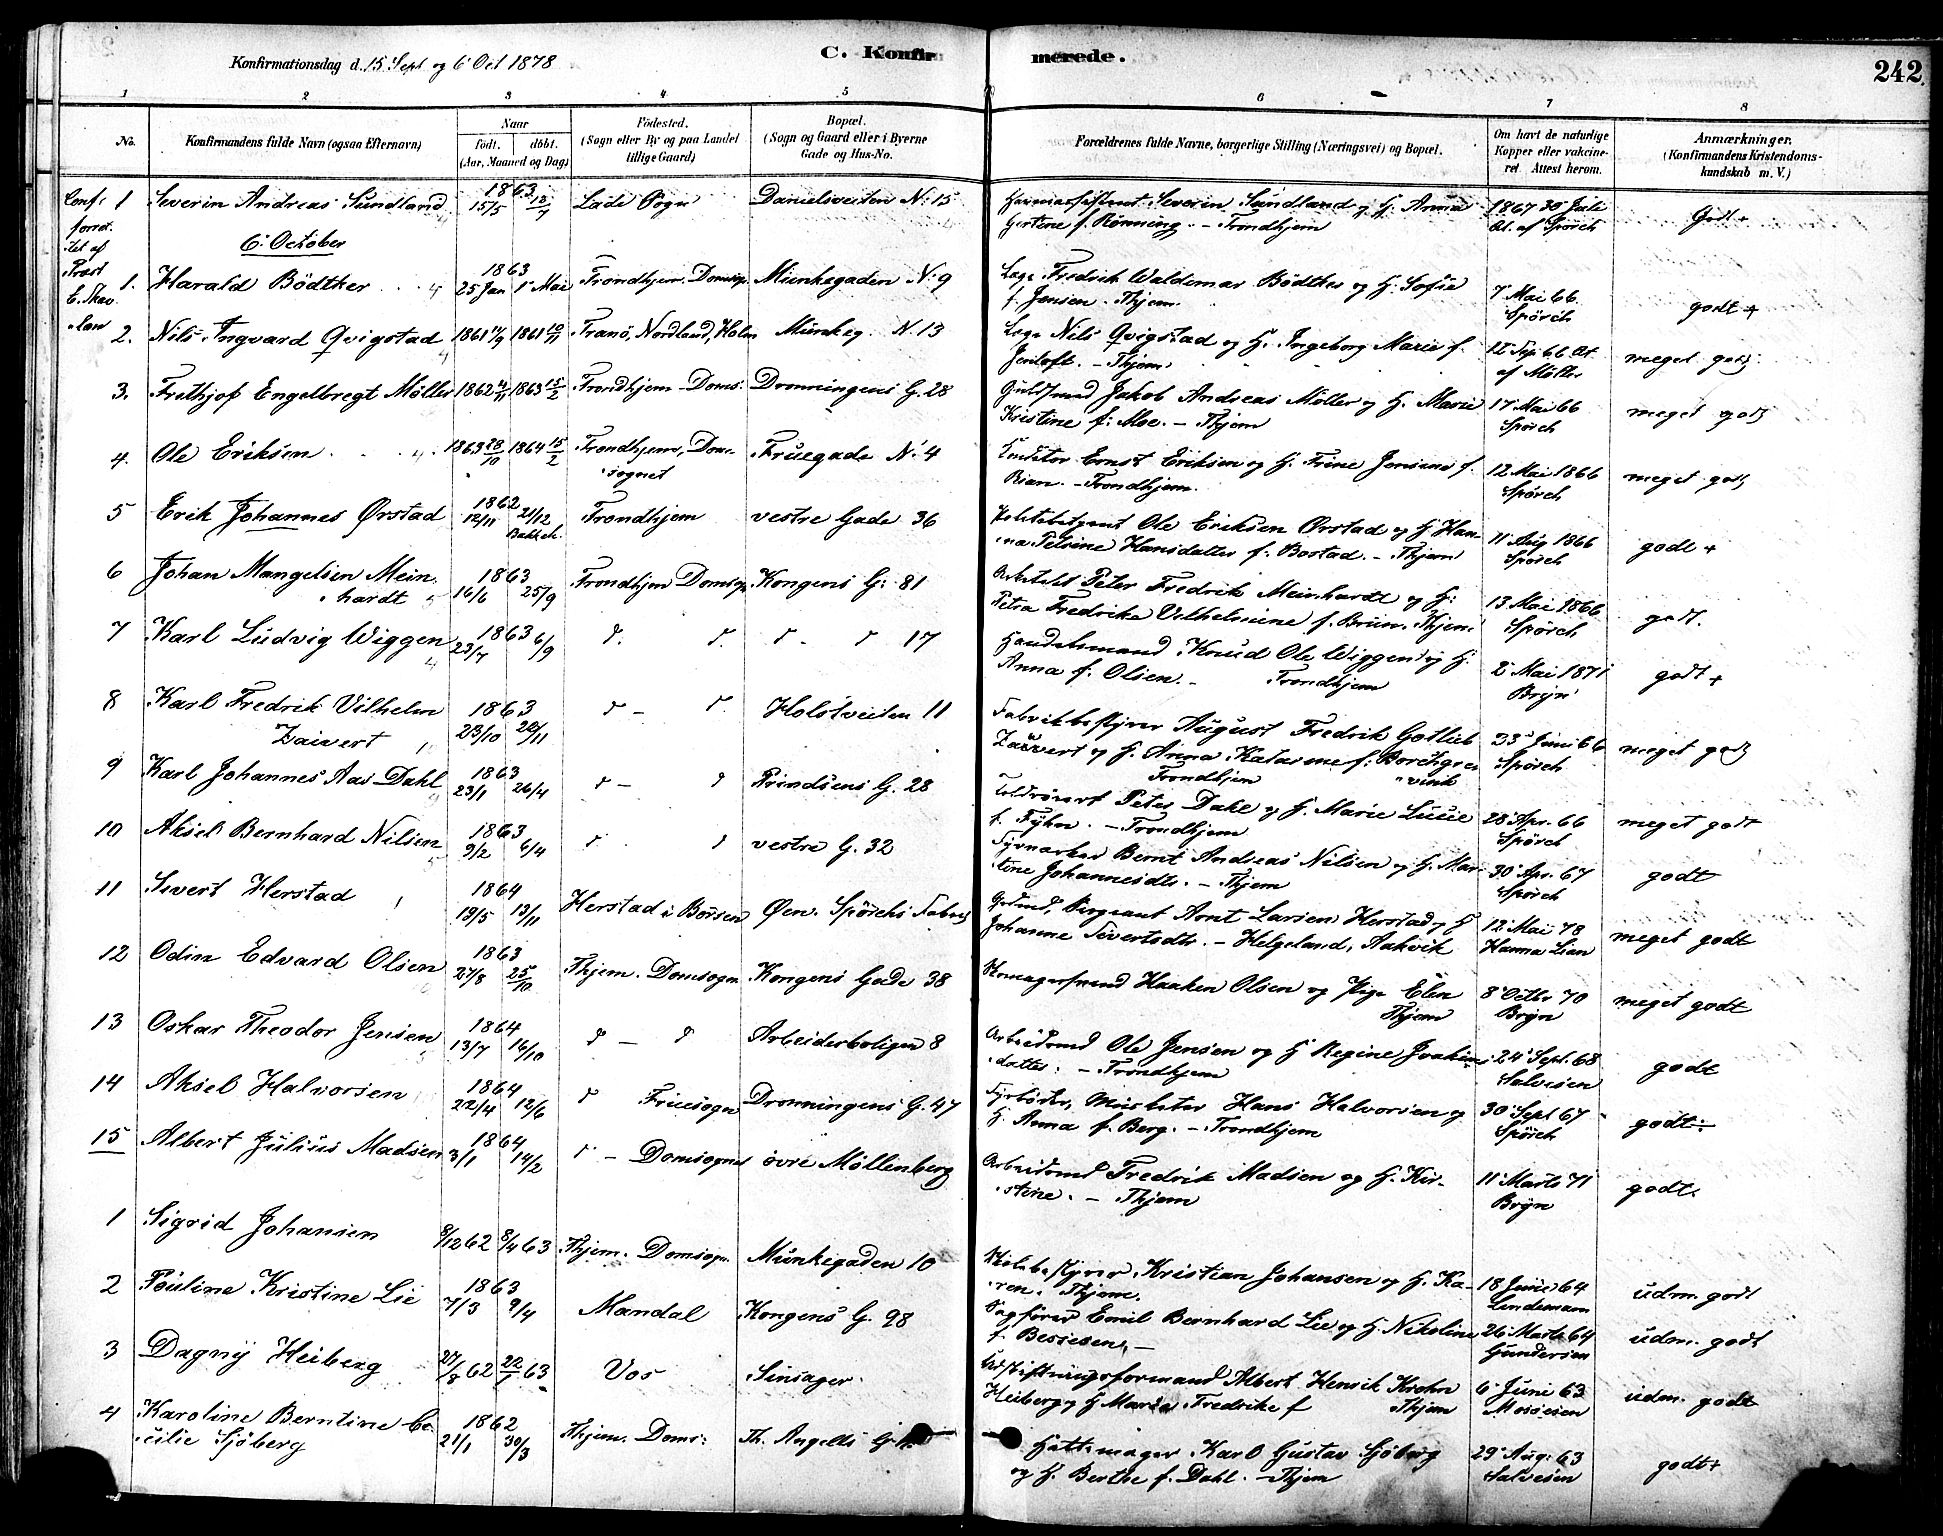 Konfirmationsdag d. 15 Sept og 6 Oct 1878
C. Konfirmerede.
242
1 2 3 4 5 6 7 8
No.
Konfirmandens fulde Navn (ogsaa Efternavn)
Naar
født. døbt.
(Aar, Maaned og Dag)
Fødested.
(Sogn eller By og paa Landet
tillige Gaard)
Bopæl.
(Sogn og Gaard eller i Byerne
Gade og Hus-No.
Forældrenes fulde Navne, borgerlige Stilling (Næringsvei) og Bopæl.
Om havt de naturlige
Kopper eller vakcine-
ret Attest herom.
Anmærkninger.
(Konfirmandens Kristendoms-
kundskab m. V.)
1 Severin Andreas Sundland 1863 15/5 12/7 Lade Sogn Danielsveiten N: 15 Severin Sundland og H. Anna
Gertine f. Rønning. - Trondhjem 1867 30 Juli
At. af Spørch Godt +
6. October
1. Harald Bödtker 1863 25 Jan 1 Mai Trondhjem Domsogn Munkegaden N: 9 Læge Fredrik Waldemar Bödtker og H. Sofie
f. Jensen. Thjem. 7 Mai 66.
Spörch godt +
2. Nils Ingvard Qvigstad 1861 1861 Tranö, Nordland, Holm Munkeg. N. 13 Læge Nils Qvigstad og H. Ingeborg Marie f.
Jentoft. - Thjem. 12 Sep 66 At.
af Möller meget godt
3. Frithjof Engelbregt Möller 1862 1863 15/2 Trondhjem - Doms: Dronningens G. 28 Guldsmed Jakob Andreas Möller og H. Marie
Kristine f. Moe. - Thjem 17 Mai 66
Spörch meget godt
4. Ole Eriksen 1863 28/10 1864 15/2 Trondhjem, Dom-
sognet Fruegade N: 4 Konditor Ernst Eriksen og H. Trine Jensine f.
Rian. - Trondhjem. 12 Mai 1866
Spörch meget godt
5 Erik Johannes Ørstad 1862 12/11 21/12
Bakkek. Trondhjem vestre Gade 36 Politibetjent Ole Eriksen Ørstad og H Han-
na Petrine Hansdatter f. Bostad. - Thjem 11 Aug 1866
Spörch godt +
6 Johan Mangelsen Mein-
hardt 1863 16/6 25/9 Trondhjem Domsogn Kongens G: 81 Peter Fredrik Meinhardt og H:
Petra Fredrike Vilhelmine f. Brun. Thjem 13 Mai 1866
Spörch godt.
7 Karl Ludvig Wiggen 1863 23/7 6/9 d. d. d. - d 17 Handelsmand Knud Ole Wiggen og H.
Anna f. Olsen. - Trondhjem 2 Mai 1871
Bryn godt +
8 Karl Fredrik Vilhelm
Zaivert 1863 23/10 22/11 d - d. Holstveiten 11 Fabrikbestyrer August Fredrik Gotlieb
Zaivert og H. Anna Katarine f: Borchgre-
Trondhjem vink 23 Juni 66
Spörch meget godt
9 Karl Johannes Aas Dahl 1863 23/1 26/4 d - d Prindsens G. 28 Peter Dahl og H. Marie Lucie
f. Fyhn. - Trondhjem 28 Apr. 66
Spörch meget godt
10 Aksel Bernhard Nilsen 1863 9/2 6/4 d d vestre G. 32 Bernt Andreas Nilsen og H. Mar-
tine Johannesdtr. - Thjem 30 Apr. 67
Spörch godt
11 Sivert Herstad 1864 19/5 13/11 Herstad i Börsen Øen. Spörchs Fabrik Sergeant Arnt Larsen Herstad og H
Johanne Sivertsdtr. - Helgeland, Aakvik 12 Mai 78
Hanna Lian meget godt
12 Odin Edvard Olsen 1863 27/8 25/10 Thjem. Domsogn Kongens Gade 38 Skomagersvend Haaken Olsen og Pige Elen
Thjem 8 Octbr 70
Bryn meget godt
13 Oskar Theodor Jensen 1864 13/7 16/10 d - d Arbeiderboligen 8 Arbeidsmd Ole Jensen og H Regine Joakims-
datter. - Trondhjem 24 Sept. 68
Salvesen godt
14 Aksel Halvorsen 1864 22/4 12/6 d Fruesogn Dronningens G. 47 Fyrböder, Hans Halvorsen og
H. Anna f. Berg. - Trondhjem 30 Sept 67
Spörch godt
15 Albert Julius Madsen 1864 3/1 14/2 d - Domsognet övre Möllenberg Arbeidsmd Fredrik Madsen og H. Kir-
stine. - Thjem 11 Marts 71
Bryn godt.
1 Sigrid Johansen 8/12 62 8/4 63 Thjem. Domsogn. Munkegaden 10 Skolebestyrer Kristian Johansen og H. Ka-
ren. Thjem. 18 Juni 64
Lindeman udm. godt
2 Pauline Kristine Lie 1863 7/3 9/4 Mandal Kongens G. 98 Sagförer Emil Bernhard Lie og H. Nikoline
f. Bessesen. - 26 Marts 64
Gundersen udm. godt
3 Dagny Heiberg 27/8 62 22/1 63 Vos Sinsager Udskiftningsformand Albert Henrik Krohn
Heiberg og H Maria Fredrike f Thjem 6 Juni 63
udm. godt
4 Karoline Berntine Ce-
cilie Sjöberg 1862 21/1 30/3 Thjem. Doms: Th. Angells G. Hattemager Karl Gustav Sjöberg
og H. Berthe f. Dahl. - Thjem 29 Aug. 63
Salvesen godt +